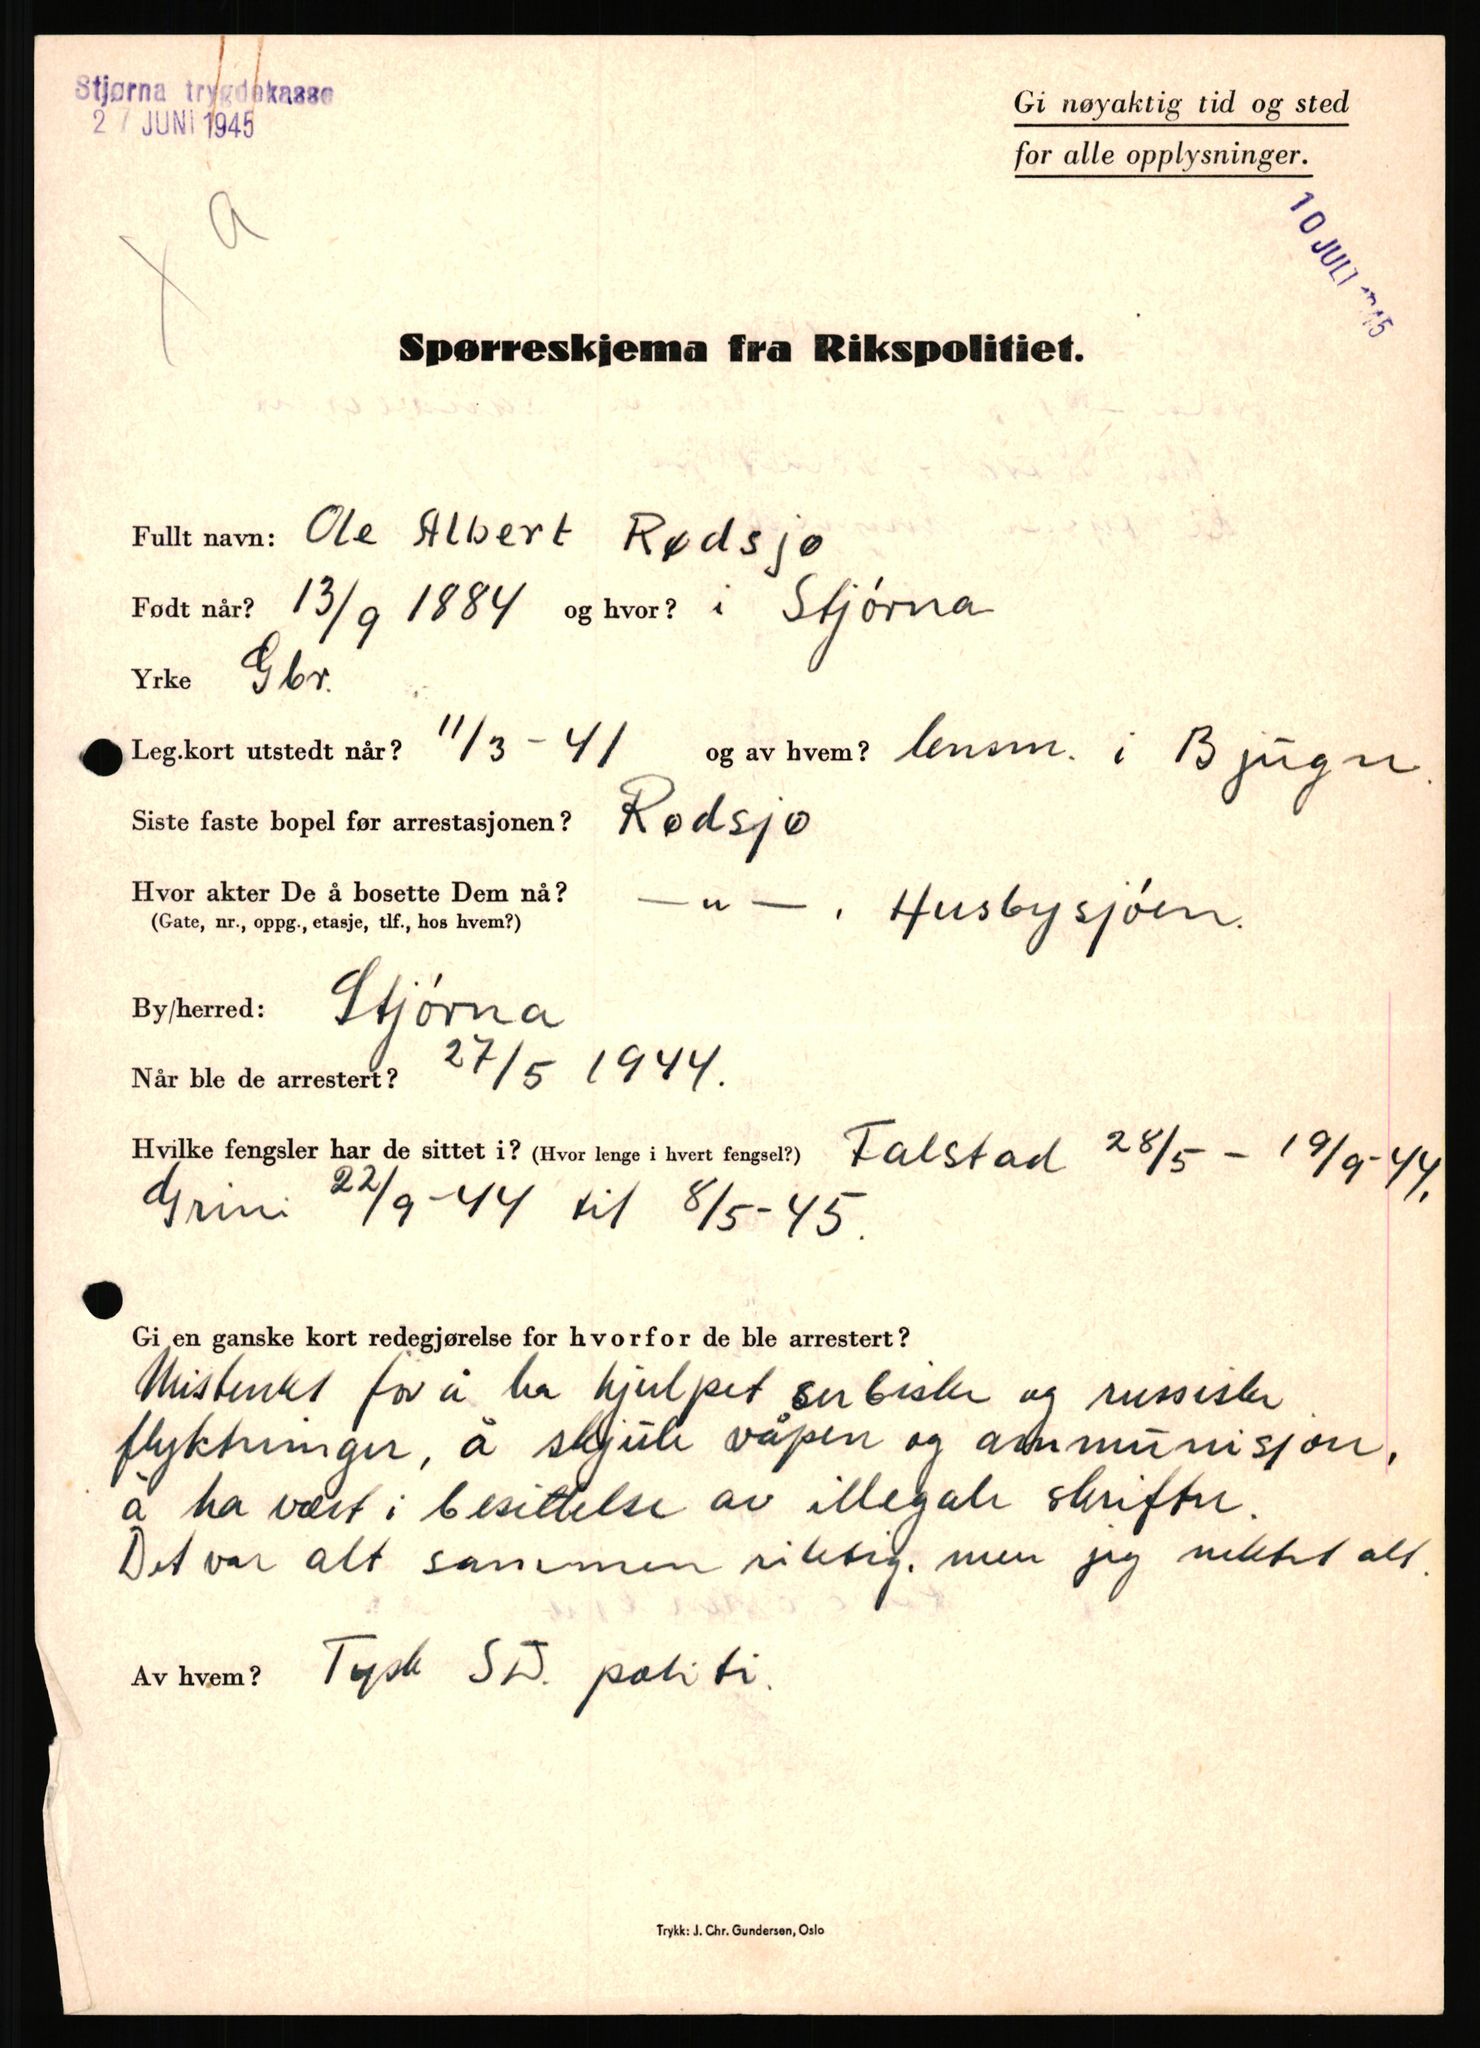 Stjørna trygdekasse
27 JUNI 1945
Gi nøyaktig tid og sted
for alle opplysninger.
10 JULI 1945
a
Spørreskjema fra Rikspolitiet.
Fullt navn: Ole Albert Rødsjø
Født når? 13/9 1884 og hvor? i Stjórna
Yrke Gbr.
Leg.kort utstedt når? 11/3-41 og av hvem? lensm. i Bjugn.
Siste faste bopel før arrestasjonen? Rødsjø
Hvor akter De å bosette Dem nå? — „ — . Husbysjóen.
(Gate, nr., oppg., etasje, tlf., hos hvem?)
By/herred: Stjórna
Når ble de arrestert? 27/5 1944.
Hvilke fengsler har de sittet i? (Hvor lenge i hvert fengsel?) Falstad 28/5 - 19/9-44.
Grini 22/9-44 til 8/5-45.
Gi en ganske kort redegjørelse for hvorfor de ble arrestert?
Mistenkt for å ha hjulpet serbiske og russiske
flyktninger, å skjule våpen og ammunisjon,
å ha vært i besittelse av illegale skrifter.
Det var alt sammen riktig. men jeg nektet alt.
Av hvem? Tysk SD. politi.
Trykk: J. Chr. Gundersen, Oslo